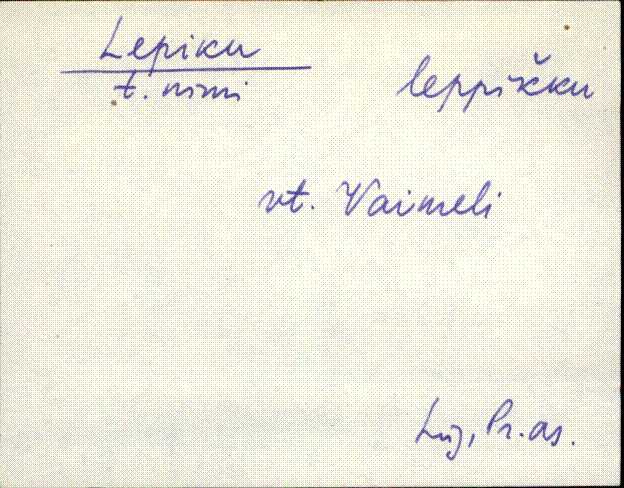 Lepiku
t. nimi leppik̆ku
vt. Vaimeli
Lüg, Pr. as.